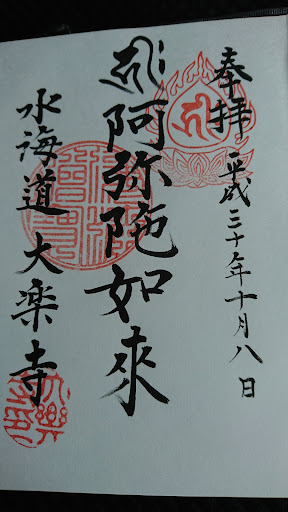 奉拝
平成三十年十月八日
阿弥陀如來
水海道大楽寺